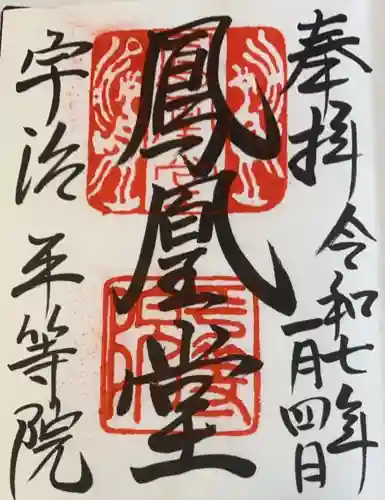 奉拝 令和七年
一月四日
鳳凰堂
宇治 平等院